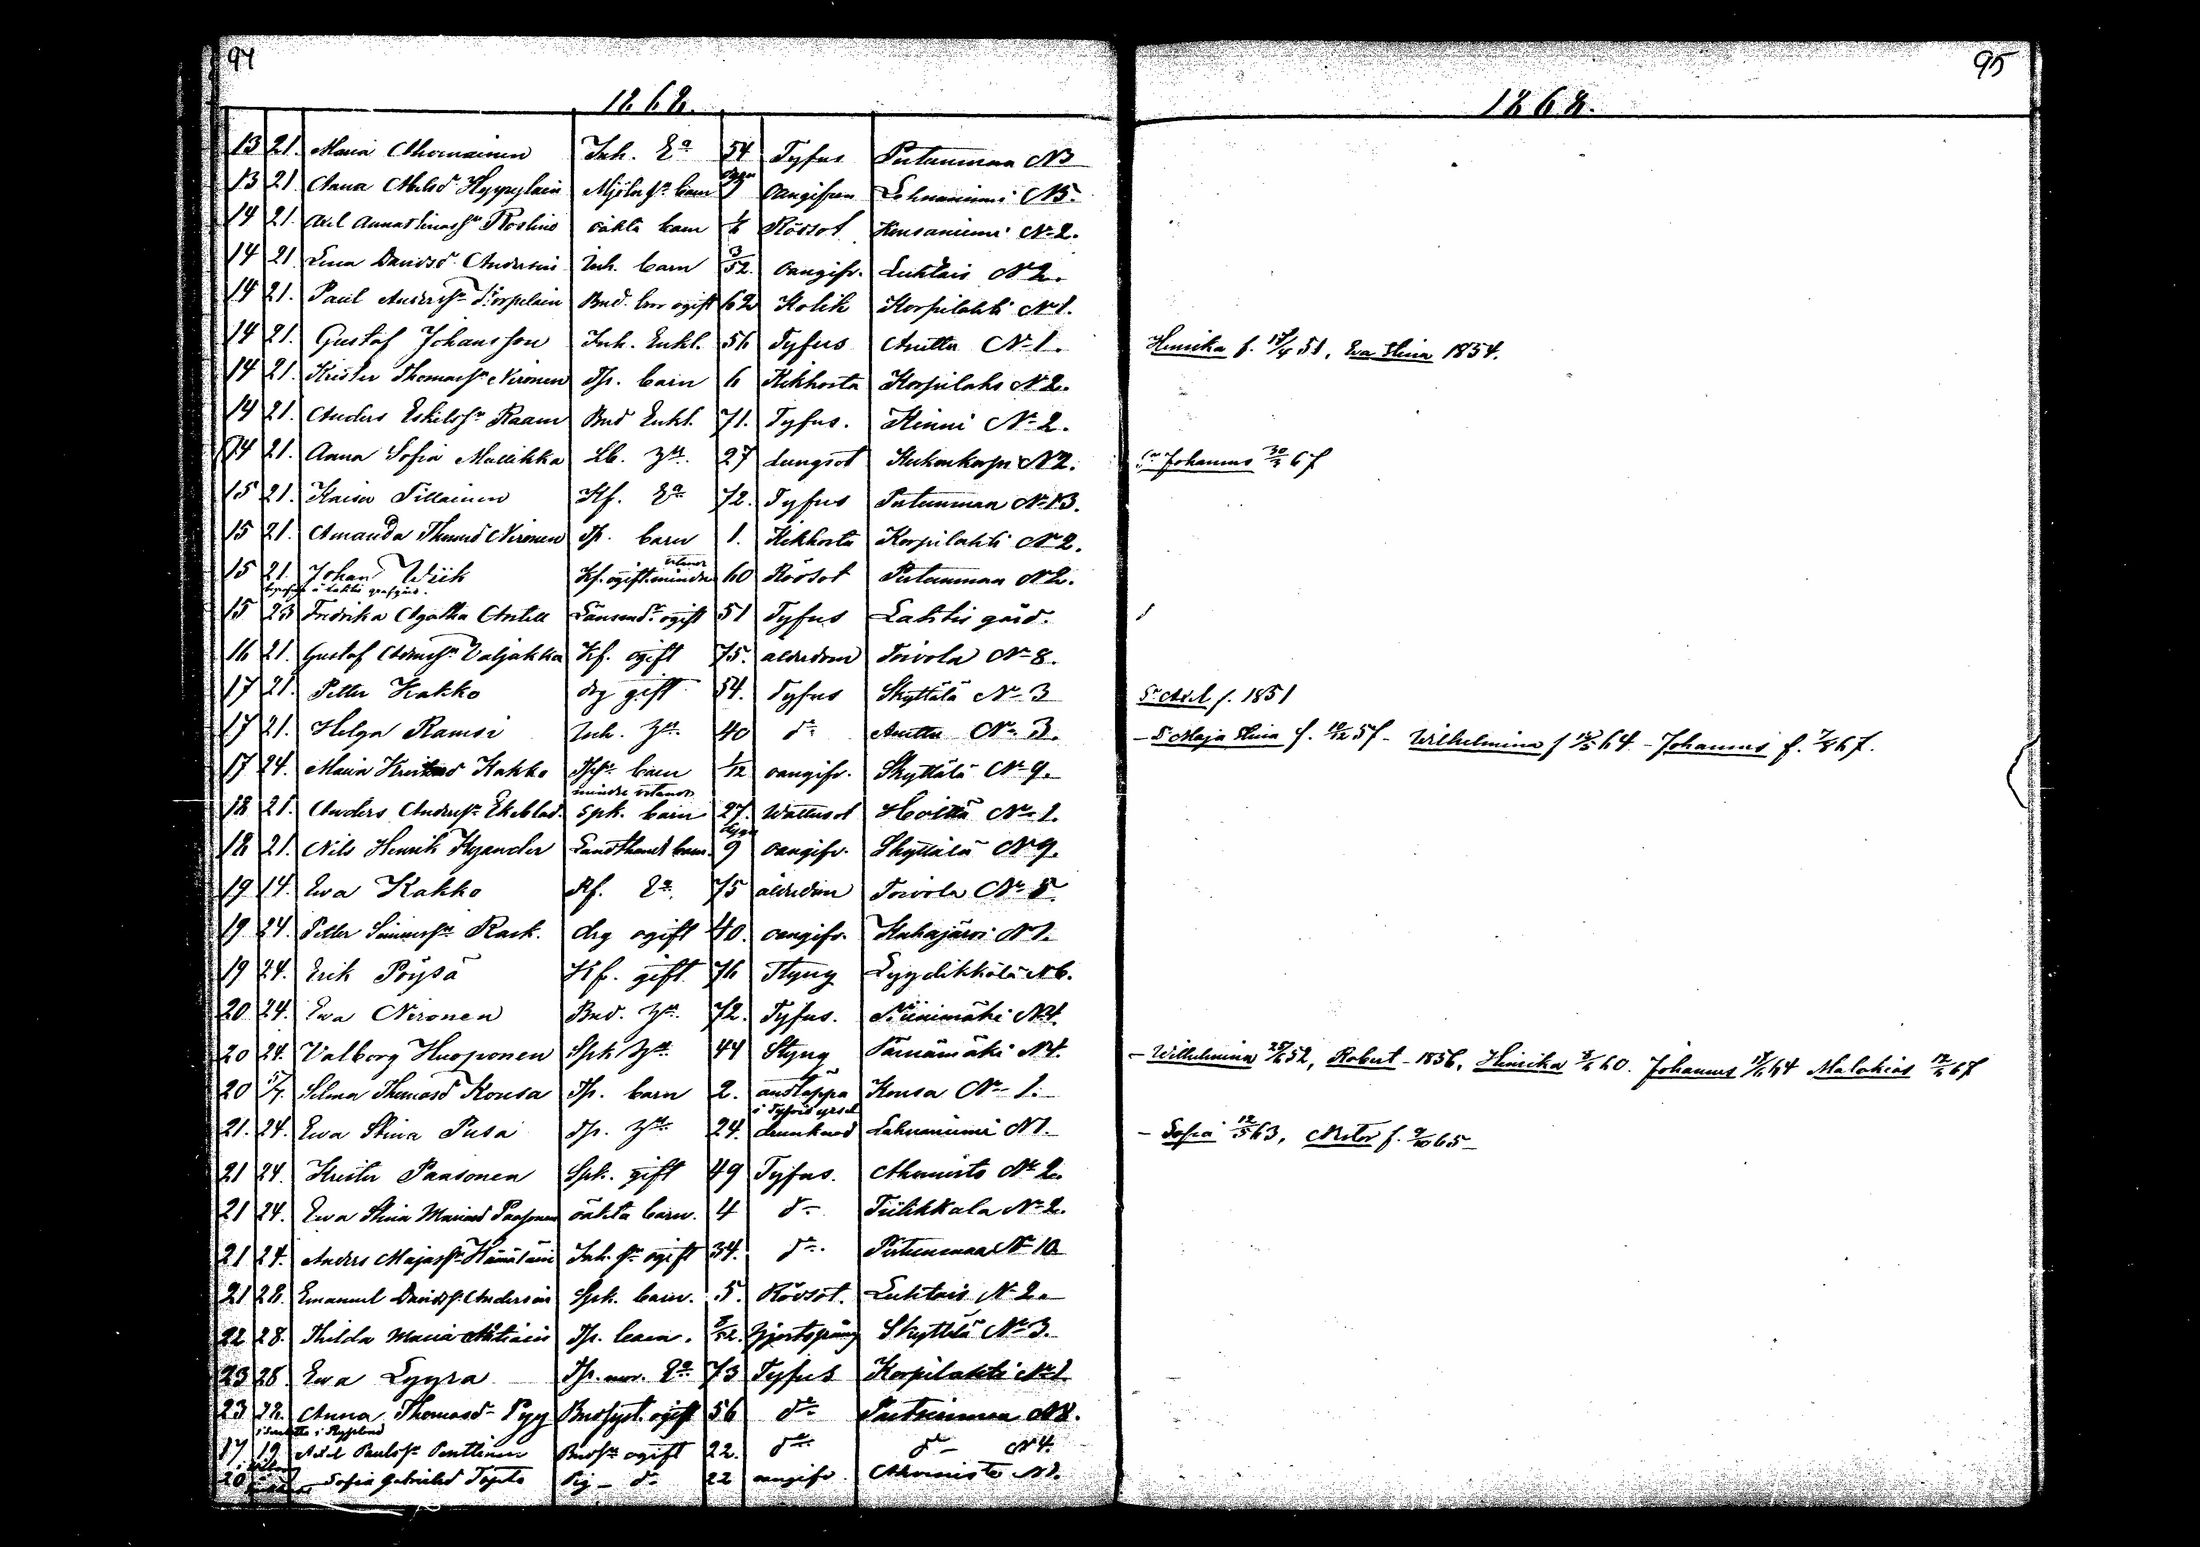 94
1868.
13 21. Maria Ahomainen Inh. Ea 54 Tyfus Pertunmaa N 3
13 21 Anna Abelsd Hyyryläin Mjöln sn barn dygn 9 oangifven Lehvaniemi N 5.
14 21 Axel Annastinas sn Roslins oäkta barn 1/6 Rödsot Kousaniemi No 2.
14 21 Lena Davidsd Andersin Inh. barn 3/52. oangifv. Luhtais No 2.
14 21. Paul Anderss n Törpelein Bnd. bror ogift 62 Kolik Korpilahti No 1.
14 21. Gustaf Johansson Inh. Enkl. 56 Tyfus Anitta No 1.
14 21. Krister Thomass n Nironen Tp. barn 6 Kikhosta Korpilaks No 2.
14 21. Anders Eskilss n Raam Bnd Enkl. 71. Tyfus. Kinni No 2.
14 21. Anna Sofia Mallikka Lb. Hu. 27 Lungsot Kukonkorpi N 2.
15 21. Kaisa Tillainen Kf. Ea 72. Tyfus Pertunmaa No 13.
15 21. Amanda Thomasd Nironen Tp. barn 1. Kikhosta Korpilahti No 2.
15 21. Johan Wiik Kf. ogift. mindre vetande 60 Rödsot Pertunmaa No 2.
15 23 Fredrika Agatha Antell Länsmd r ogift 51 Tyfus Lahtis gård.
16 21. Gustaf Anderss n Valjakka Kf. ogift 75. ålderdom Toivola No 8.
17 21. Petter Kakko drg gift 54. Tyfus Skyttälä No 3
17 21. Helga Ramsi Inh. Hu. 40 do Anitta No 3.
17 24. Maria Kristersd Kakko barn 1/12 oangifv. Skyttälä No 9.
mindre vetande
18 21. Anders Anderss n Ekeblad. Spk. barn 27. Wattusot Hoilä No 1.
18 21. Nils Henrik Kyander Landthandl barn. dygn 9 oangifv. Skyttälä No 9.
19 14. Ewa Kakko Kf. Ea. 75 ålderdom Toivola No 5.
19 24. Petter Simonss n Rask. drg ogift 40. oangifv. Kuhajärvi N 1.
19 24. Erik Pöysä Kf. gift 76 Styng Lyydikkälä N 6.
20 24. Ewa Nironen Bnd. Hu. 72. Tyfus. Niinimäki N 4.
20 24. Valborg Huoponen Spk Hu. 44 Styng Pärnämäki N 4.
20 5/7. Selma Thomasd Kousa Tp. barn 2. andtäppa Kousa No 1.
i Tyfoid yrsel
21. 24. Ewa Stina Pusa Tp. Hu. 24. drunknad Lahnaniemi N 1.
21 24. Krister Paasonen Spk. gift 49 Tyfus. Ahvenisto No 2.
21 24. Ewa Stina Mariasd Paasonen oäkta barn. 4 do Tiihkkala No 2.
21 24. Anders Majass n Hämäläin Inh. sn ogift 34. do Pertunmaa No 10
21 28. Emanuel Davidss. Andersin Spk. barn. 5. Rödsot. Luhtais No 2.
22 28. Thilda Maria Tp. barn. /52. Hjertsprång Skyttälä No 3.
23 28. Ewa Lyyra Tp. mor. Ea 73 Tyfus Korpilahti No 1
23 28. Anna Thomasd Pyy Bnd syst. ogift 56 do Pertunmaa N 8.
17 19 Axel Paulss n Penttinen Bnds n ogift 22. do do N 4.
20 Sofia Gabrielsd Topto Pig do 22 oangifv. Ahvenisto N 1.
95
1868.
Henrika f. 51, Eva Stina 1854.
Sn Johannes 67
Sn Axel f. 1851
- Maja Stina f. 57 - Wilhelmina f 64 - Johannes f. 67.
- Wilhelmina 52, Robert - 1856, Henrika 60. Johannes 64 Malakias 67
- Sofia 12/5 63, Nestor f. 9/10 65 -